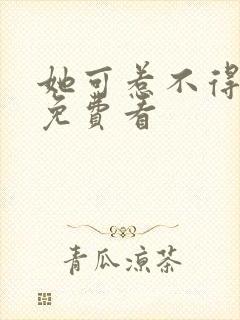 她可惹不得
免費看
青瓜凉茶